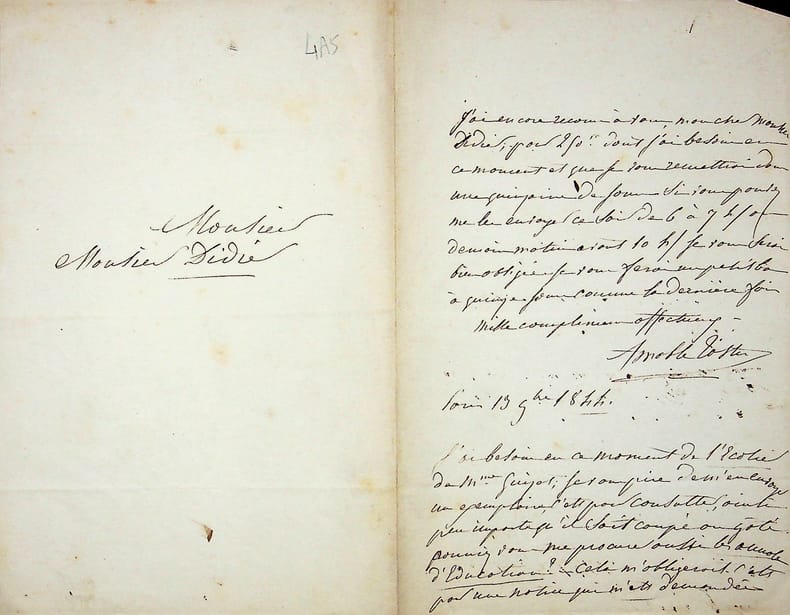 4A5
Monsieur
Monsieur Didié
J'ai encore recour à vous, mon cher Monsieur
Didié, pour 250 dont j'ai besoin en
ce moment et que je vous remettrai dans
une quinzaine de jours. Si vous pouviez
me les envoyer ce soir de 6 à 7 h/ ou
demain matin avant 10 h/ je vous serai
bien obligée. Je vous ferai un petit bon
à quinze jours comme la dernière fois
mille complimens affectueux
Amable Tastu
Paris 13 9bre 1844.
J'ai besoin en ce moment de l'Ecolier
de Mme Guizot, je vous prie de m'en envoyer
un exemplaire, c'est pour consulter, ainsi
peu importe qu'il soit coupé ou gâté.
pourriez vous me procurer aussi les annales
d'Education? - Cela m'obligerait, c'est
pour une notice qui m'est demandée